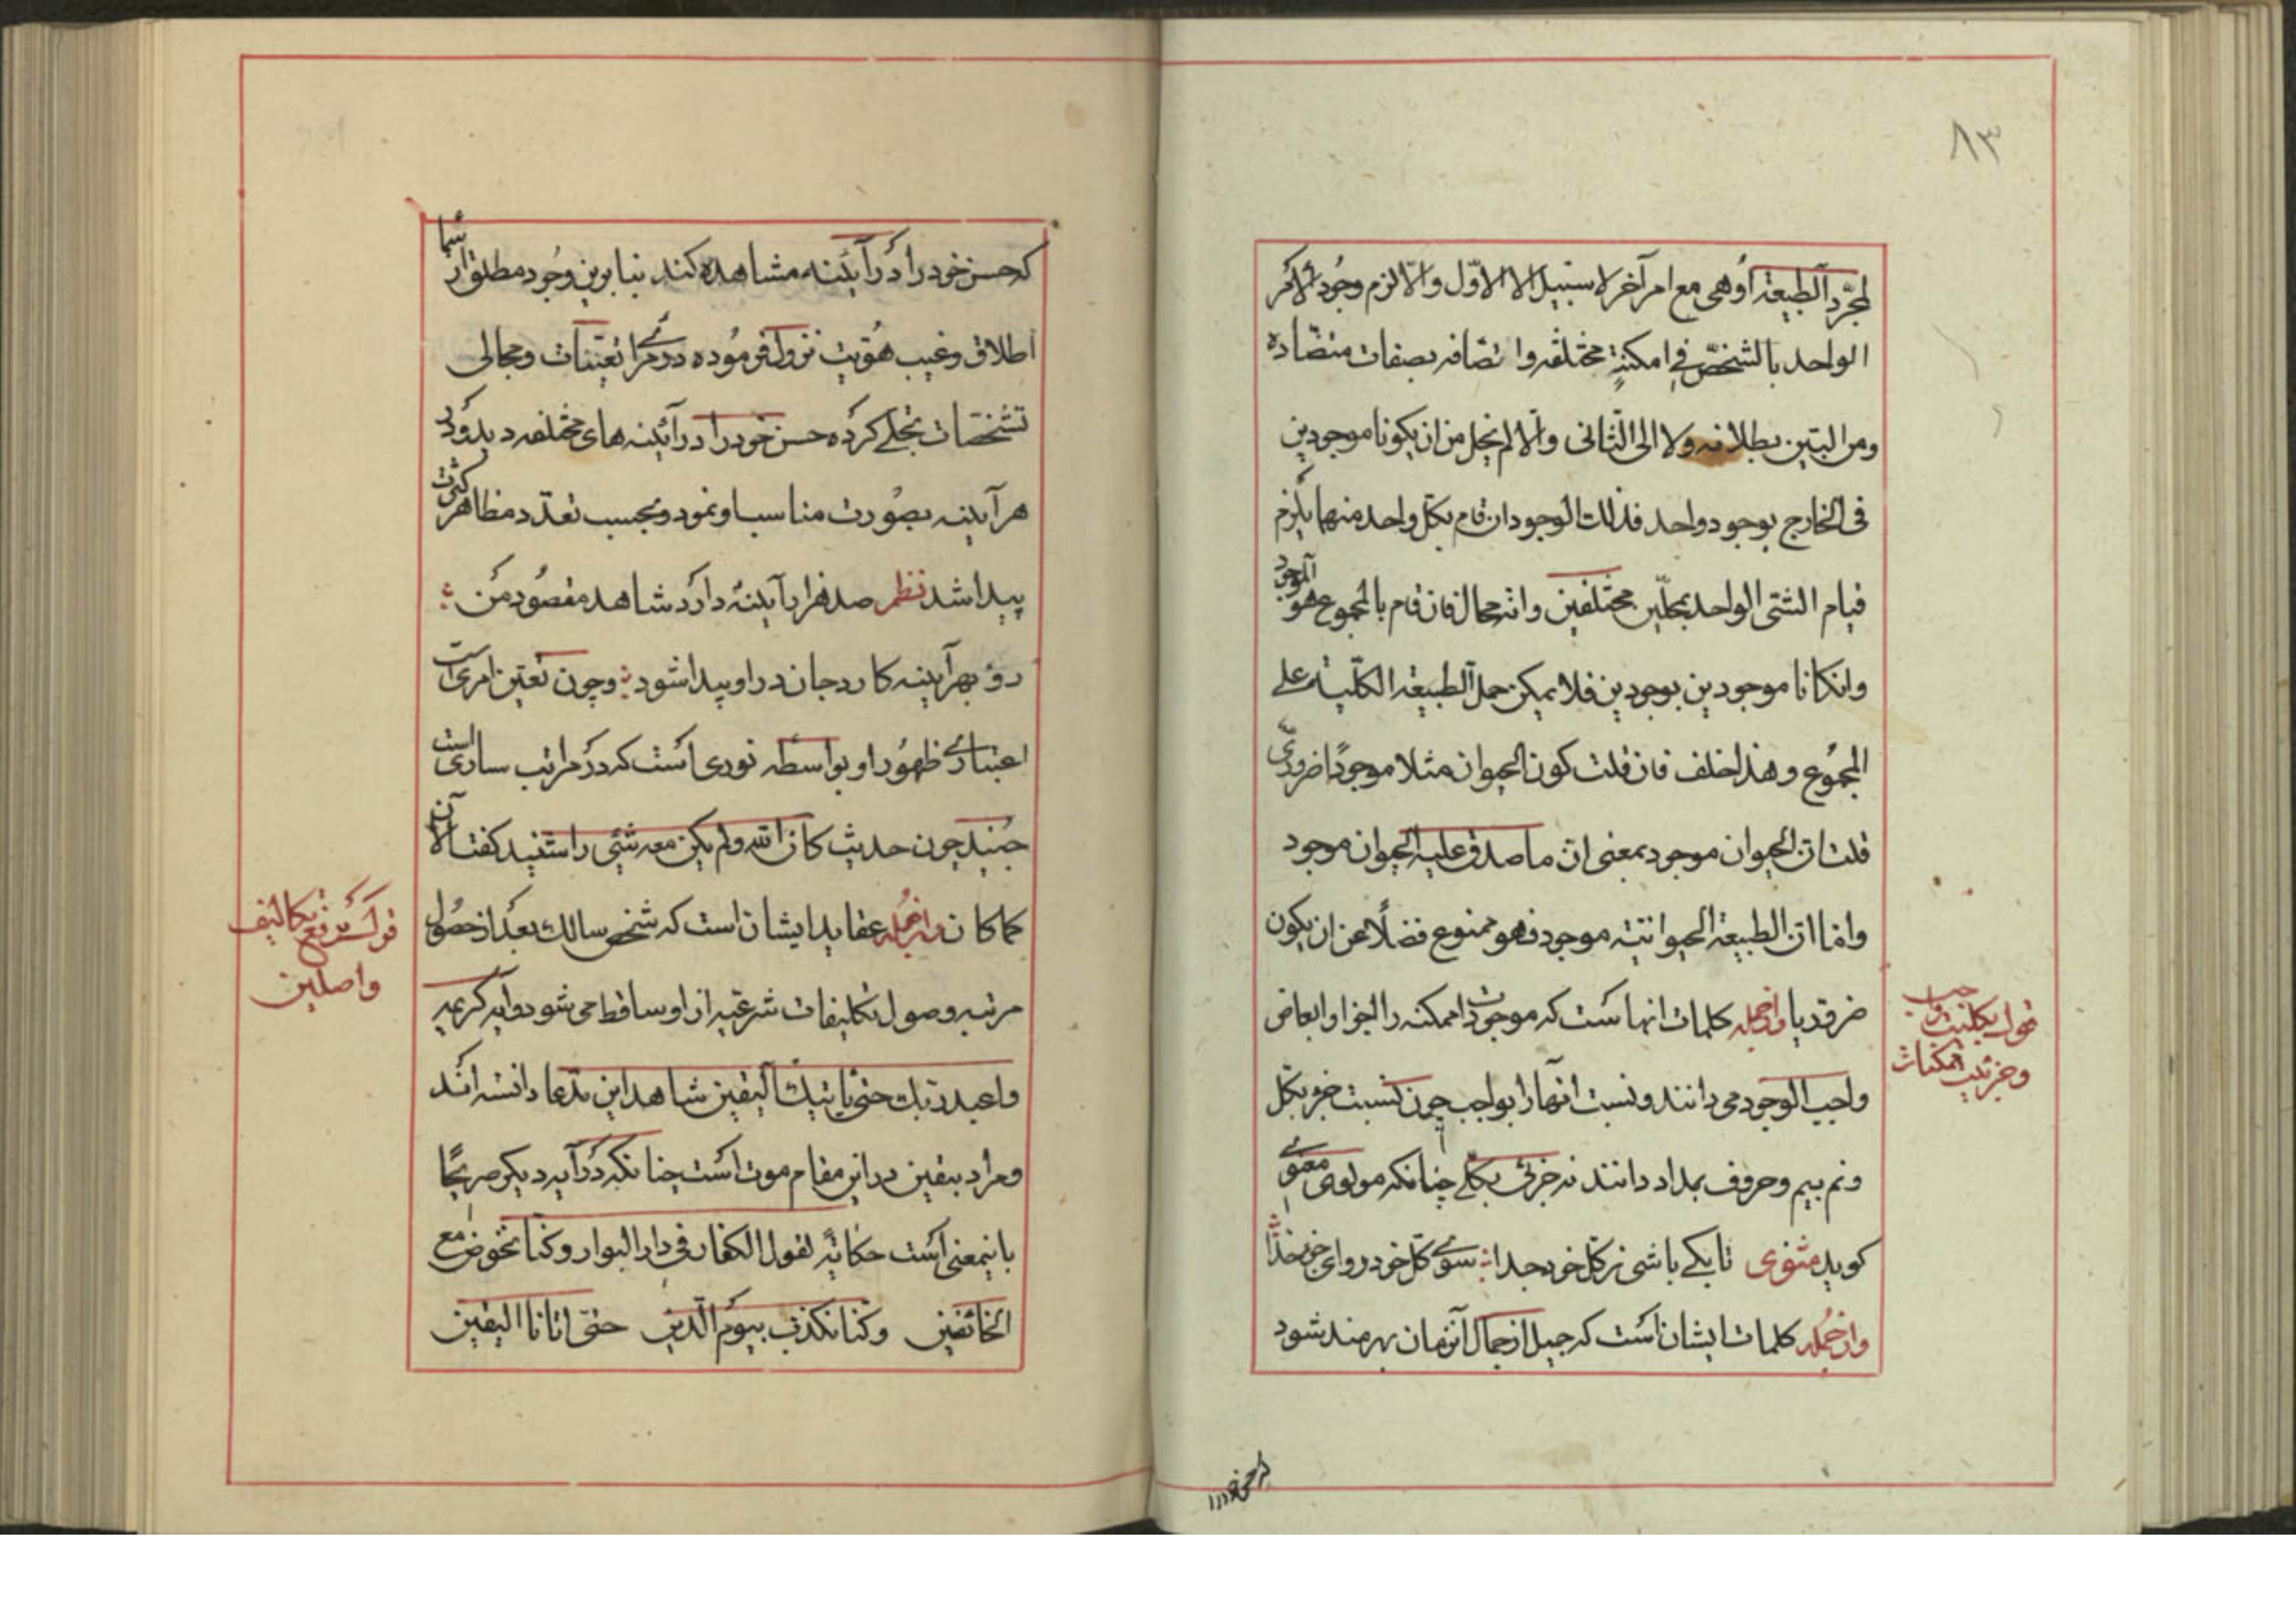 ۸۳
لمجرّد الطبیعة او هی مع امر آخر لا سبیل الا الاوّل والّا لزم وجود الامر
الواحد بالشخص فی امکنةٍ مختلفه واتصافه بصفات متضاده
ومن البیّن بطلانه ولا الی الثانی والّا لم یخل من ان یکونا موجودین
فی الخارج بوجود واحد فذلک الوجود ان قام بکل واحد منهما یلزم
قیام الشئ الواحد بمحلّین مختلفین وانه محال فان قام بالمجموع هو الموجود
وانکانا موجودین بوجودین فلا یمکن حمل الطبیعة الکلّیه علی
المجموع وهذا خلف فان قلت کون الحیوان مثلا موجودًا ضروریّ
قلت انّ الحیوان موجود بمعنی انّ ما صدق علیه الحیوان موجود
وامّا انّ الطبیعة الحیوانیّة موجود فهو ممنوع فضلًا عن ان یکون
ضروریا وازجمله کلمات انهاست که موجودات ممکنه را اجزا و ابعاض
واجب الوجود می دانند و نسبت انها را بواجب چون نسبت جزء بکل
ونم بیم وحروف بمداد دانند نه جزئی بکلی چنانکه مولوی معنوی
کوید مثنوی تا بکے باشی ز کل خود جدا سوی کل خود رو ای جزو خدا
وازجمله کلمات ایشان است که جمیل از جمال آنزمان بهرمند شود
قول بکلیت واجب
وجزئیت ممکنات
که حسن خود را در آئینه مشاهده کند بنابرین وجود مطلق از سما
اطلاق وغیب هویت نزول فرموده در مرای تعیّنات ومجالی
تشخصات تجلے کرده حسن خود را در آئینه های مختلفه دید و در
هر آیینه بصورت مناسب او نمود و بحسب تعدد مظاهر کثرت
پیدا شد نظم صد هزار آیینه دارد شاهد مقصود من
رو بهر آیینه کارد جان در او پیدا شود وچون تعیّن امری است
اعتباری ظهور او بواسطه نوری است که در مراتب ساری است
جنید چون حدیث کان الله ولم یکن معه شئی را شنید کفت الآن
کما کان وازجمله عقاید ایشان است که شخص سالک بعد از حصول
مرتبه وصول تکلیفات شرعیّه از او ساقط می شود وآیه کریمه
واعبد ربک حتی یاتیک الیقین شاهد این مدعا دانسته اند
ومراد بیقین در این مقام موت است چنانکه در آیه دیکر صریحًا
باینمعنی است حکایةً لقول الکفار فی دار البوار وکنا نخوض مع
الخائضین وکنا نکذب بیوم الدین حتی اتانا الیقین
قول برفع تکالیف
واصلین